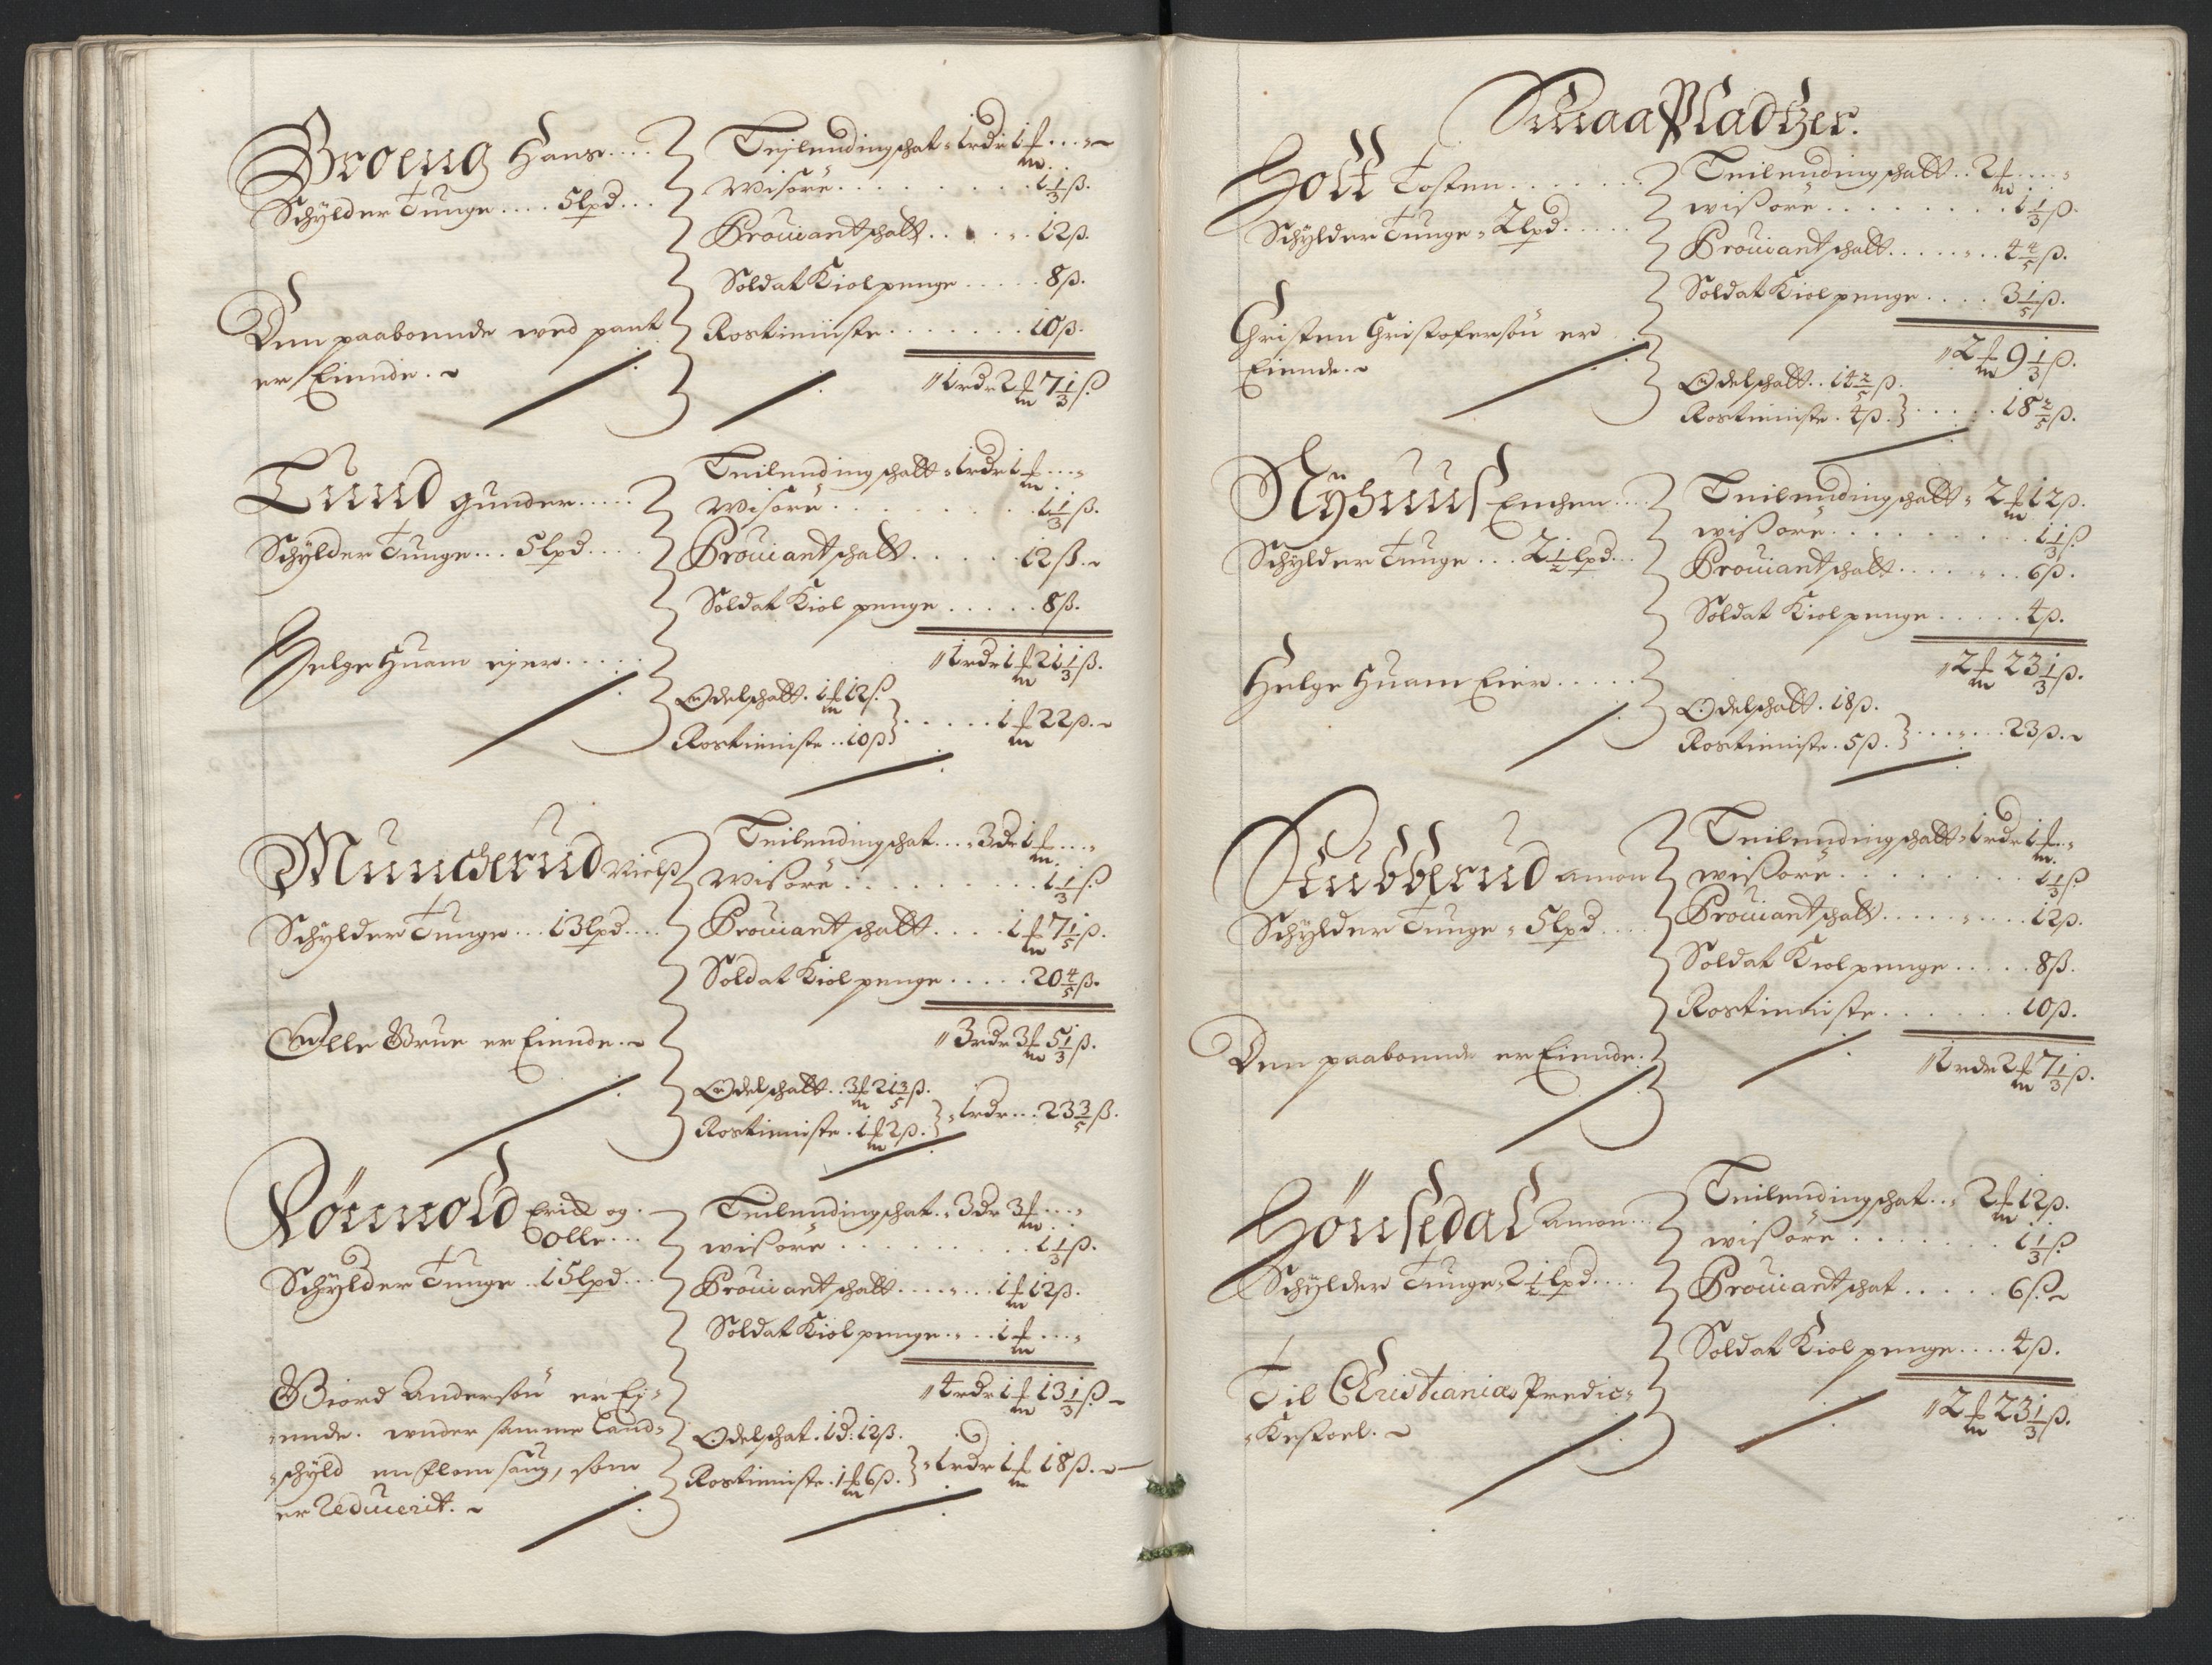 Broeng Hans....
Schÿlder Tunge.... 5 lpd...
Den paaboende wed pant
er Eiende.
Teilendingschat " 1 rdr 1 m....
Wisöre......... 1 1/3 ß.
Prouiantschatt...... 12 ß.
Soldat Kiolpenge..... 8 ß.
Rostieniste....... 10 ß.
" 1 rdr 2 m 7 1/3 ß.
Tuud gunder.....
Schÿlder Tunge... 5 lpd....
Helge Huam ejer.....
Teilendingschatt " 1 rdr 1 m...
Wisöre........ 1 1/3 ß.
Prouiantschatt...... 12 ß.
Soldat Kiol penge..... 8 ß.
" 1 rdr 1 m 21 1/3 ß.
Odelschatt. 1 m 12 ß.
Rostieniste.. 10 ß } ..... 1 m 22 ß.
Muncherud Nielß
Schÿlder Tunge... 13 lpd....
Olle Brue er Eiende.
Teilendingschat... " 3 dr 1 m...
Wisöre......... 1 1/3 ß.
Prouiantschatt.... 1 m 7 1/5 ß.
Soldat Kiol penge..... 20 4/5 ß.
" 3 rdr 3 m 5 1/3 ß.
Odelschatt.. 3 m 21 3/5 ß.
Rostieniste. 1 m 2 ß. } " 1 rdr... 23 3/5 ß.
Pönnold Erich og
Olle...
Schÿlder Tunge.. 15 lpd...
Biord Andersön er Ej-
ende. wnder samme Land-
schÿld en flom saug, som
er Reducerit.
Teilendingschat.. 3 dr 3 m...
wisöre......... 1 1/3 ß.
Prouiantschatt....... 1 m 12 ß.
Soldat Kiolpenge.... 1 m...
" 4 rdr 1 m 13 1/3 ß.
Odelschat. 1 d: 12 ß.
Rostieniste. 1 m 6 ß. } " 1 rdr 1 m 18 ß.
Smaa Pladtzer.
Holt Tosten.......
Schÿlder Tunge " 2 lpd.....
Christen Christofersön er
Eiende.
Teilendingschatt.. 2 m....
wisöre........ 1 1/3 ß.
Prouiantschatt....... 4 4/5 ß.
Soldat Kiolpenge.... 3 1/5 ß.
" 2 m 9 1/3 ß.
Odelschatt.. 14 2/5 ß.
Rostieniste. 4 ß. } ..... 18 2/5 ß.
Nÿhuus Enchen....
Schÿlder Tunge... 2 1/2 lpd...
Helge Huam Eier.....
Teilendingschatt " 2 m 12 ß.
wisöre......... 1 1/3 ß
Prouiantschatt....... 6 ß.
Soldat Kiolpenge..... 4 ß.
" 2 m 23 1/3 ß.
Odelschatt. 18 ß.
Rostieniste. 5 ß. } ...... 23 ß.
Stubberud Amon
Schÿlder Tunge " 5 lpd....
Den paaboende er Eiende.
Teilendingschatt " 1 rdr 1 m..
wisöre........ 1 1/3 ß
Prouiantschatt........ 12 ß.
Soldat Kiolpenge..... 8 ß.
Rostieniste...... 10 ß.
" 1 rdr 2 m 7 1/3 ß.
Hönsedal Amon...
Schÿlder Tunge " 2 1/2 lpd....
Til Christianiæ Predic-
-Kestoel.
Teilendingschat.. " 2 m 12 ß.
wisöre....... 1 1/3 ß
Prouiantschat..... 6 ß
Soldat Kiol penge.... 4 ß.
" 2 m 23 1/3 ß.